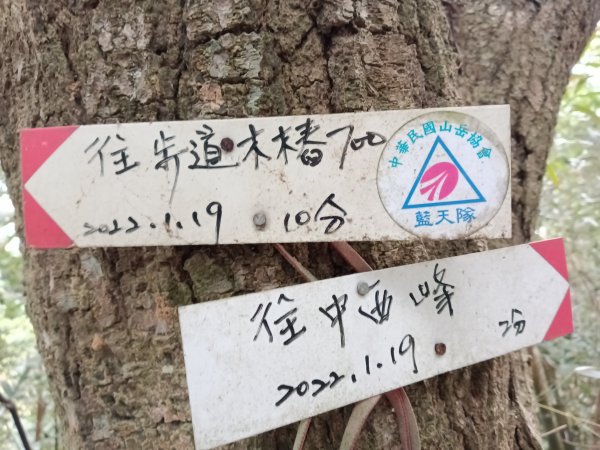 往步道木樁700
2022.1.19 10分
中華民國山岳協會
藍天隊
往中西峰
2分
2022.1.19